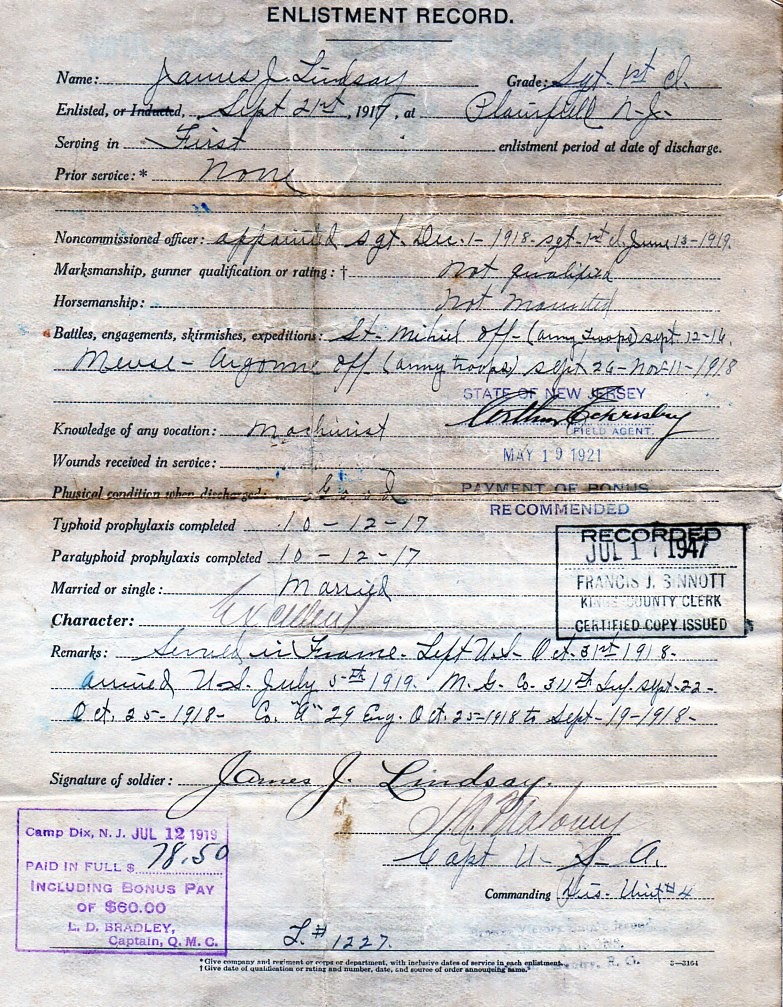 ENLISTMENT RECORD.
Name: James J. Lindsay Grade: Sgt. 1st cl.
Enlisted, or Inducted, Sept 21st, 1917, at Plainfield N-J-
Serving in First enlistment period at date of discharge.
Prior service: * None
Noncommissioned officer: appointed sgt. Dec. 1-1918- sgt-1st cl. June 13-1919.
Marksmanship, gunner qualification or rating: † Not qualified
Horsemanship: Not mounted
Battles, engagements, skirmishes, expeditions: St- Mihiel Off- (army troops) sept-12-16.
Meuse- Argonne Off- (army troops) sept 26- Nov-11-1918
STATE OF NEW JERSEY
Knowledge of any vocation: Machinist
FIELD AGENT.
Wounds received in service:
MAY 19 1921
Physical condition when discharged: Good
PAYMENT OF BONUS
RECOMMENDED
Typhoid prophylaxis completed 10-12-17
Paratyphoid prophylaxis completed 10-12-17
RECORDED
JUL 1 1947
FRANCIS J. SINNOTT
KINGS COUNTY CLERK
CERTIFIED COPY ISSUED
Married or single: Married
Character: Excellent
Remarks: Served in France. Left U.S- Oct. 31st 1918-
arrived U.S. July 5th 1919. M. G. Co. 311th Inf. sept-22-
Oct. 25-1918- Co. "A" 29 Eng. Oct. 25-1918 to Sept-19-1918-
Signature of soldier: James J. Lindsay.
Capt U- S- A.
Commanding Dis. Unit #4
Camp Dix, N. J. JUL 12 1919
PAID IN FULL $ 78.50
INCLUDING BONUS PAY
OF $60.00
L. D. BRADLEY,
Captain, Q. M. C.
L.# 1227.
* Give company and regiment or corps or department, with inclusive dates of service in each enlistment.
† Give date of qualification or rating and number, date, and source of order announcing same.
3—3164